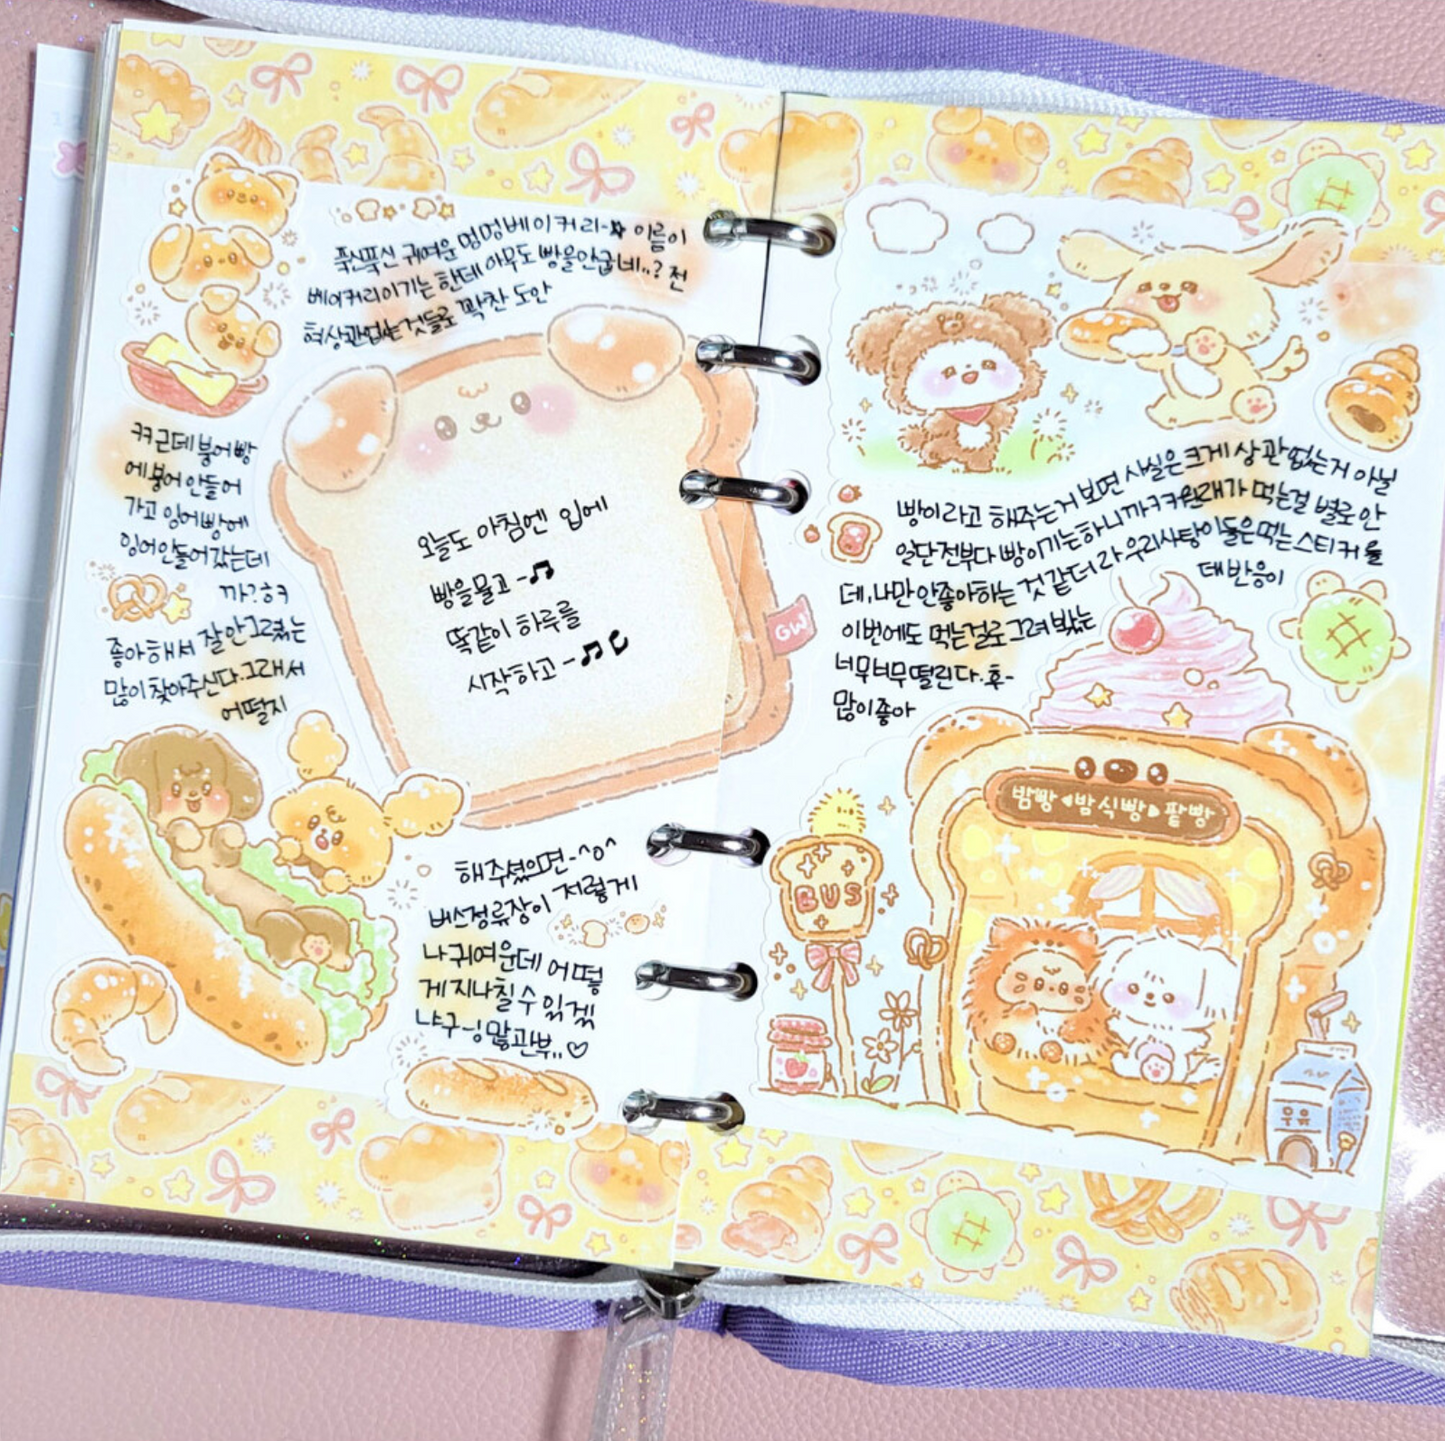 푹신푹신 귀여운 멍멍베이커리-☆ 이름이
베이커리이기는 한데 아무도 빵을안굽네..? 전
혀상관없는것들로 꽉찬 도안
ㅋㅋ근데 붕어빵
에붕어 안들어
가고 잉어빵에
잉어안들어갔는데
까?ㅎㅋ
좋아해서 잘안그렸는
많이찾아주신다.그래서
어떨지
오늘도 아침엔 입에
빵을물고-♫
똑같이 하루를
시작하고-♫
GW
해주셨으면-^o^
버스정류장이 저렇게
나귀여운데 어떻
게지나칠수있겠
냐구-! 많관부..♡
빵이라고 해주는거 보면 사실은크게 상관없는거 아닐
까ㅋㅋ원래가 먹는걸 별로안
일단전부다 빵이기는하니
데,나만안좋아하는 것같더라 우리사탕이들은먹는스티커를
대반응이
이번에도 먹는걸로그려봤는
너무너무떨린다.후-
많이좋아
밤빵 밤식빵 팥빵
BUS
우유